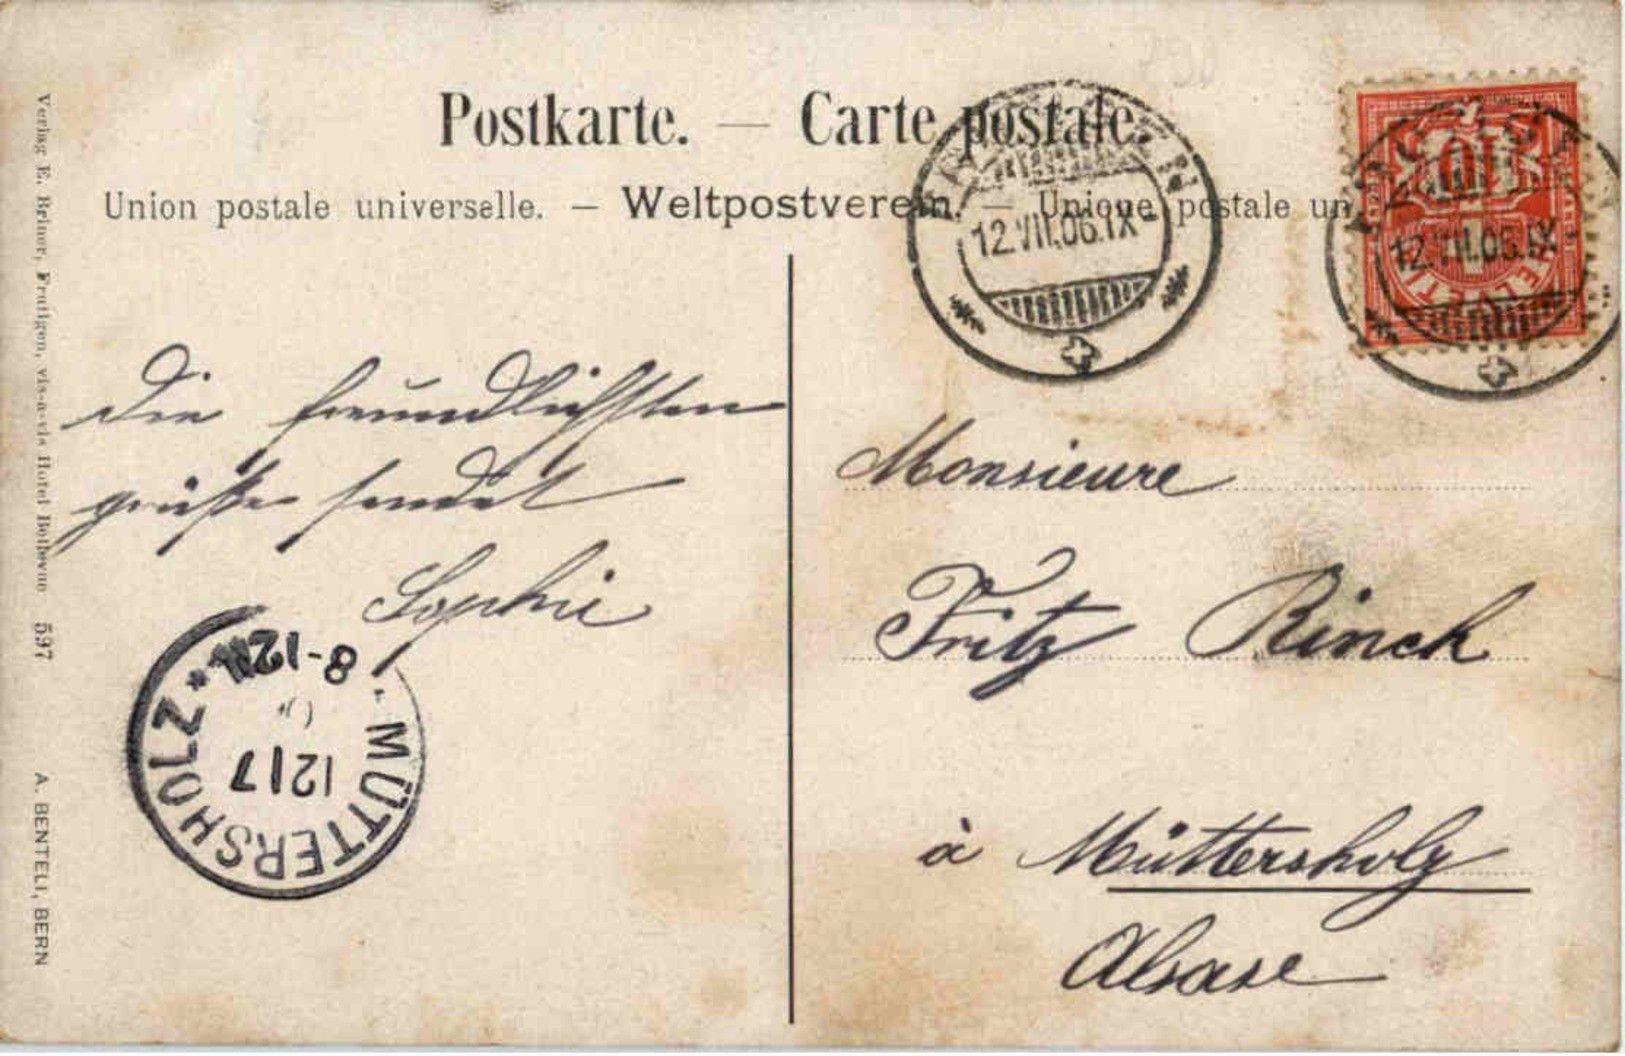 Postkarte. — Carte postale.
Union postale universelle. — Weltpostverein. — Unione postale un
12.VII.06.IX-
10
12.VII.06.IX-
HELVETIA
Die freundlichsten
grüße sendet
Sophie
Monsieure
Fritz Rinck
à Müttersholz
Alsase
MÜTTERSHOLZ
12/7
8-12
Verlag E. Briner, Frutigen, vis-a-vis Hotel Bellevue 597
A. BENTELI, BERN